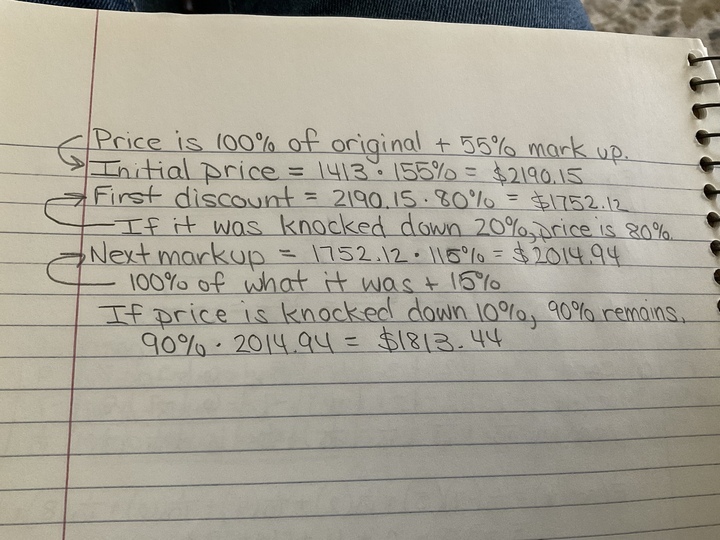 Price is 100% of original + 55% mark up.
Initial price = 1413 · 155% = $2190.15
First discount = 2190.15 · 80% = $1752.12
If it was knocked down 20%, price is 80%.
Next markup = 1752.12 · 115% = $2014.94
100% of what it was + 15%
If price is knocked down 10%, 90% remains.
90% · 2014.94 = $1813.44